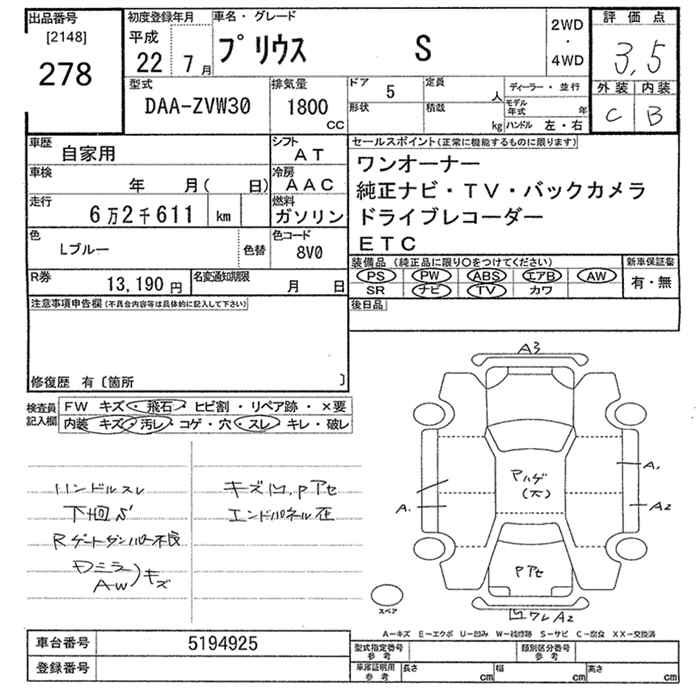 出品番号
[2148]
278
初度登録年月
平成
22年 7月
車名・グレード
プリウス S
2WD
・
4WD
評価点
3,5
外装 内装
C B
型式
DAA-ZVW30
排気量
1800
CC
ドア 5
定員 人
形状
積載 kg
ディーラー・並行
モデル年式 年
ハンドル 左・右
車歴 自家用
シフト AT
車検 年 月( 日)
冷房 AAC
走行 6万2千611 km
燃料 ガソリン
色 Lブルー
色替
色コード 8V0
R券 13,190円
名変通知期限 月 日
セールスポイント(正常に機能するものに限ります)
ワンオーナー
純正ナビ・TV・バックカメラ
ドライブレコーダー
ETC
装備品 (純正品に限り○をつけてください)
PS PW ABS エアB AW
SR ナビ TV カワ
新車保証書
有・無
後日品
注意事項申告欄(不具合内容等は具体的に記入して下さい)
修復歴 有〔箇所 〕
検査員記入欄
FW キズ・飛石・ヒビ割・リペア跡・×要
内装 キズ・汚レ・コゲ・穴・スレ・キレ・破レ
ハンドルスレ
下回サ
Rゲートダンパー不良
Dミラー
AW
キズ
キズ凹,Pアセ
エンドパネル歪
A3
A.
A.
A2
Pハゲ
(大)
Pアセ
凹ワレA2
スペア
A-キズ E-エクボ U-凹み W-補修跡 S-サビ C-腐食 XX-交換済
車台番号 5194925
登録番号
型式指定番号
参考
類別区分番号
参考
車庫証明用
参考
長さ cm 幅 cm 高さ cm